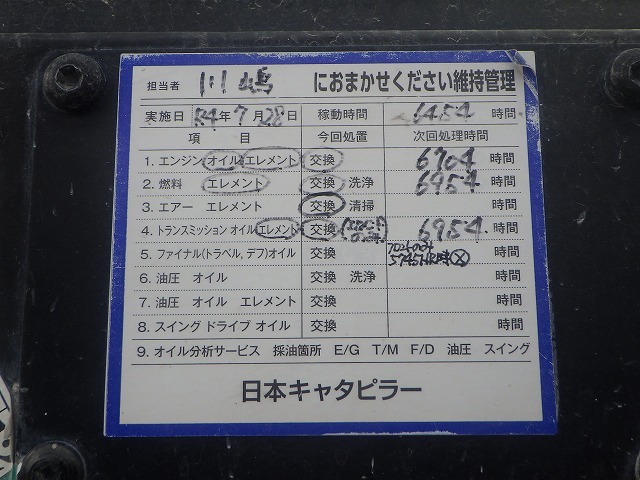 担当者 川嶋 におまかせください維持管理
実施日 R4年7月28日 稼動時間 6454 時間
項 目 今回処置 次回処理時間
1. エンジン オイル エレメント 交換 6704 時間
2. 燃料 エレメント 交換 洗浄 6954 時間
3. エアー エレメント 交換 清掃 時間
4. トランスミッション オイル エレメント 交換 6954 時間
5. ファイナル(トラベル, デフ)オイル 交換 5745HR時 時間
6. 油圧 オイル 交換 洗浄 時間
7. 油圧 オイル エレメント 交換 時間
8. スイング ドライブ オイル 交換 時間
9. オイル分析サービス 採油箇所 E/G T/M F/D 油圧 スイング
日本キャタピラー